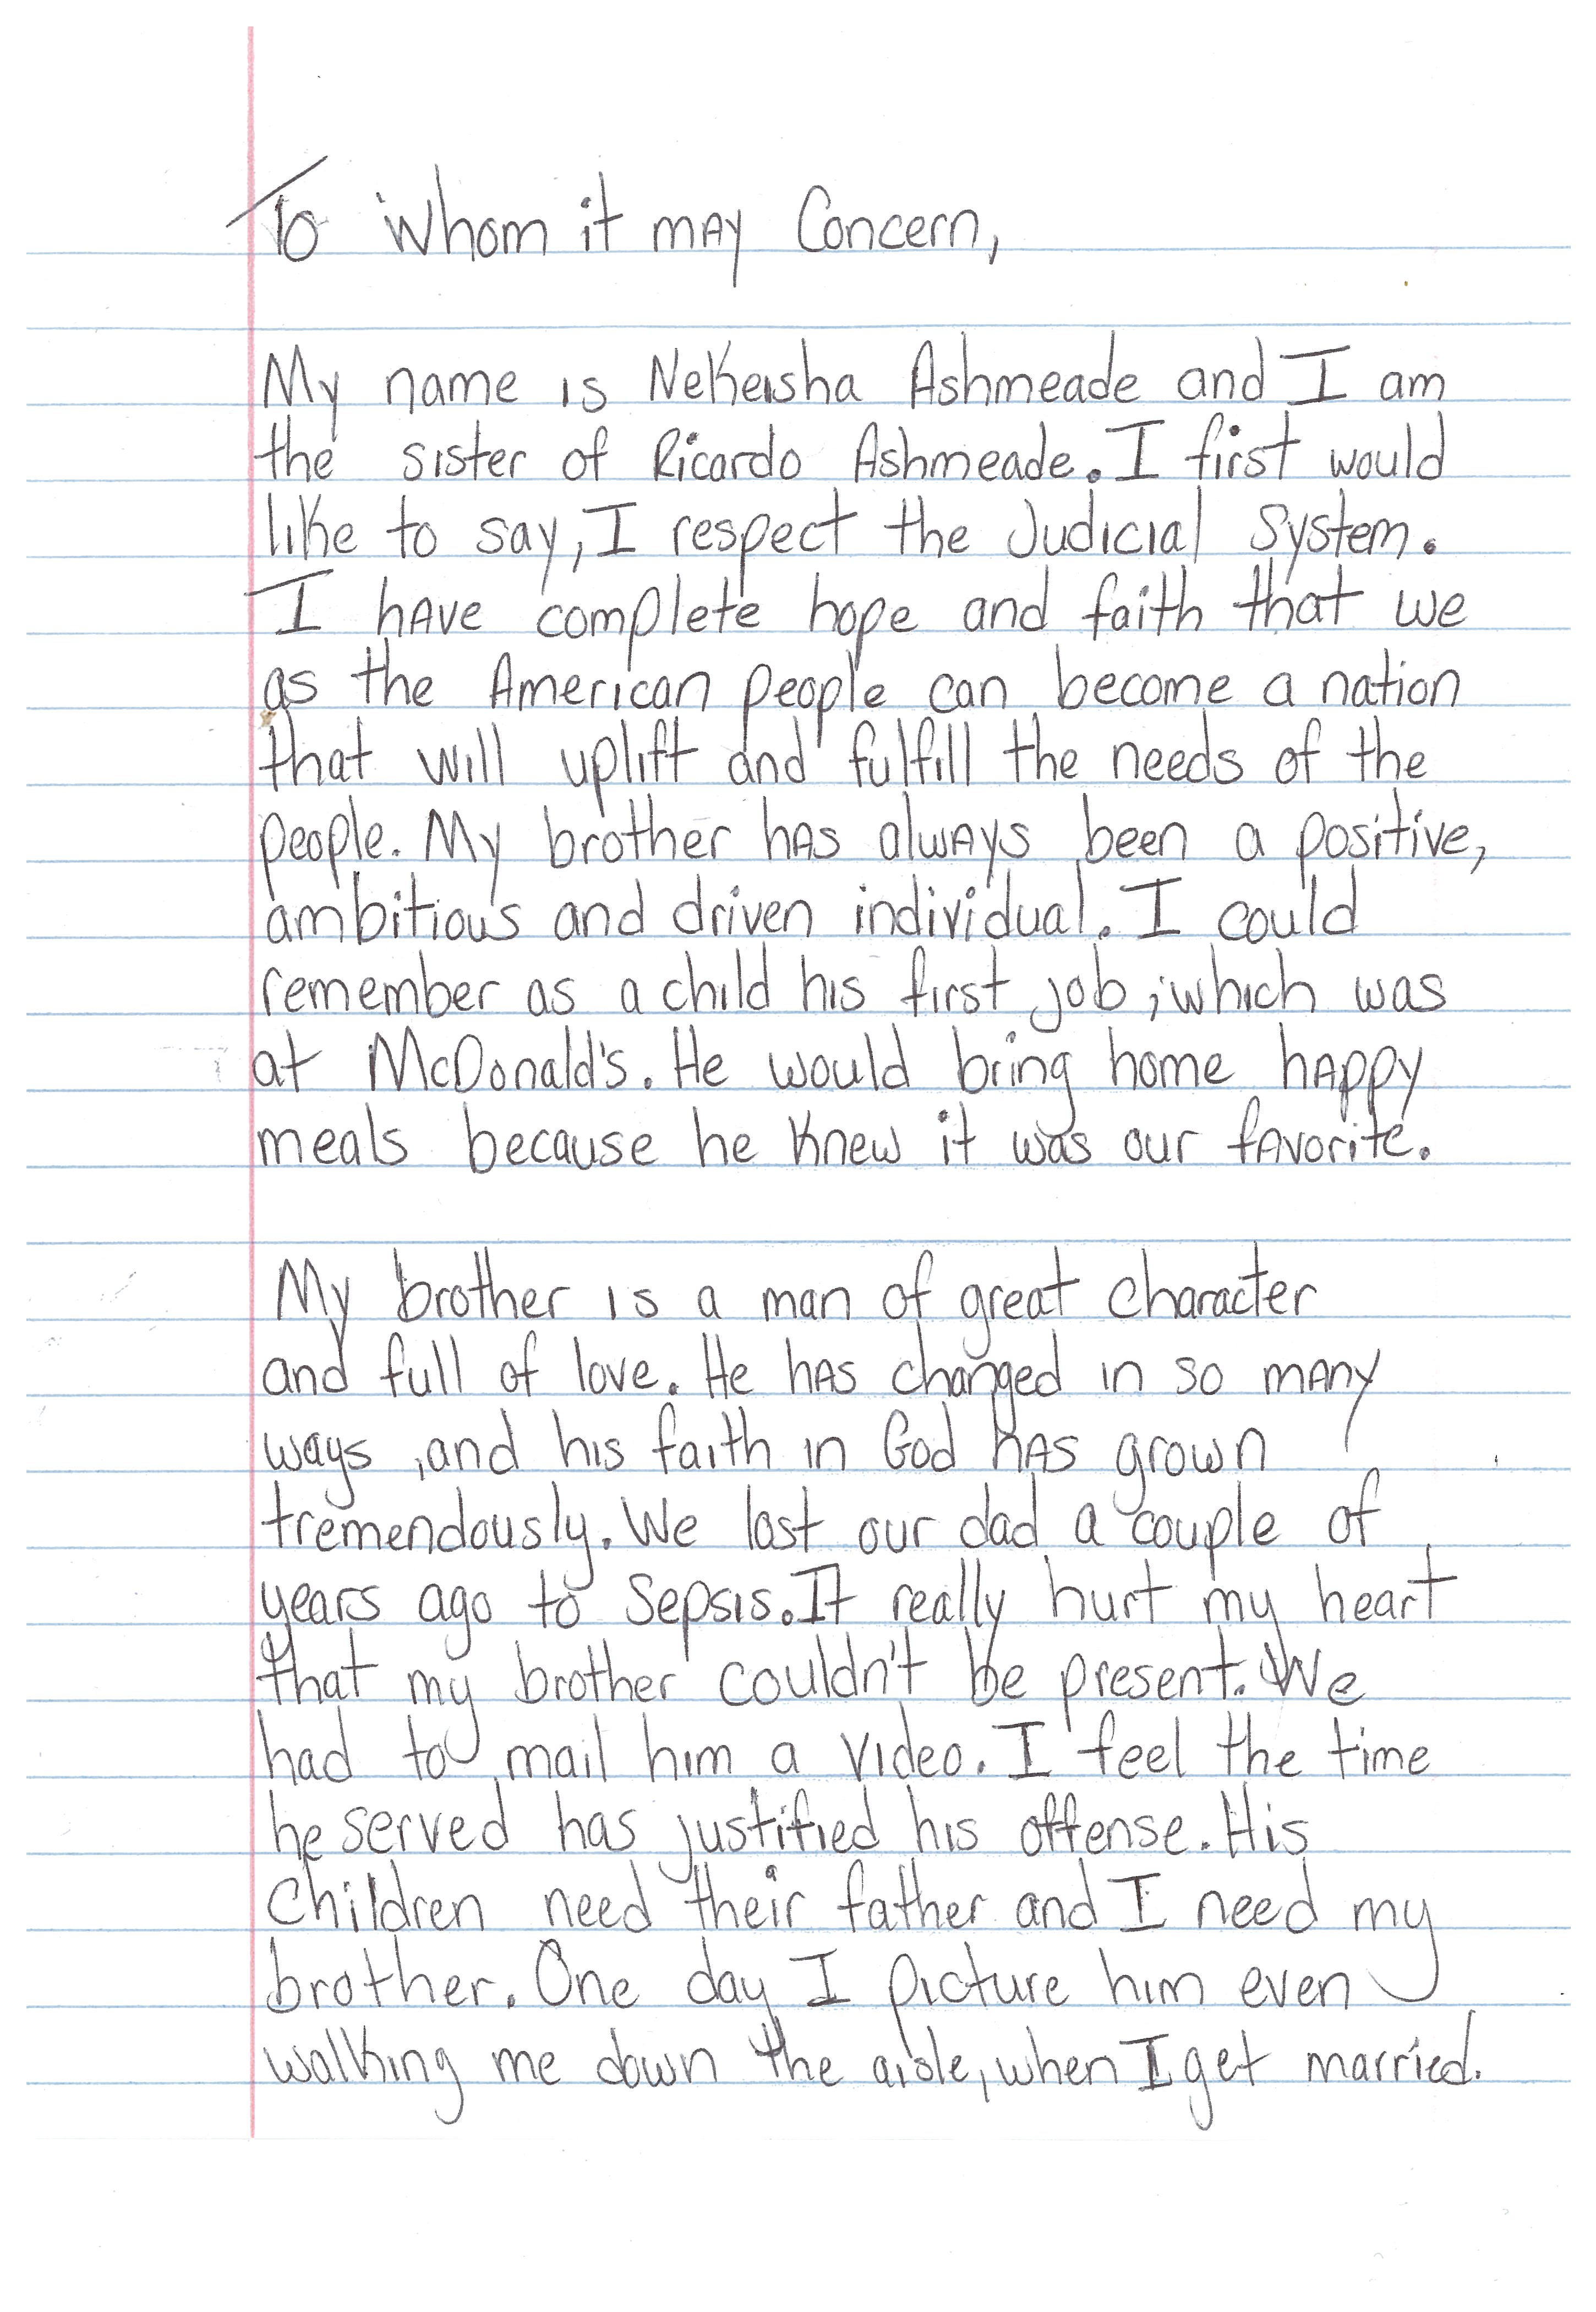 To Whom it may Concern,
My name is Nekeisha Ashmeade and I am
the sister of Ricardo Ashmeade. I first would
like to say, I respect the Judicial System.
I have complete hope and faith that we
as the American people can become a nation
that will uplift and fulfill the needs of the
people. My brother has always been a positive,
ambitious and driven individual. I could
remember as a child his first job, which was
at McDonald's. He would bring home happy
meals because he knew it was our favorite.
My brother is a man of great character
and full of love. He has changed in so many
ways, and his faith in God has grown
tremendously. We lost our dad a couple of
years ago to Sepsis. It really hurt my heart
that my brother couldn't be present. We
had to mail him a video. I feel the time
he served has justified his offense. His
Children need their father and I need my
brother. One day I picture him even
walking me down the aisle, when I get married.